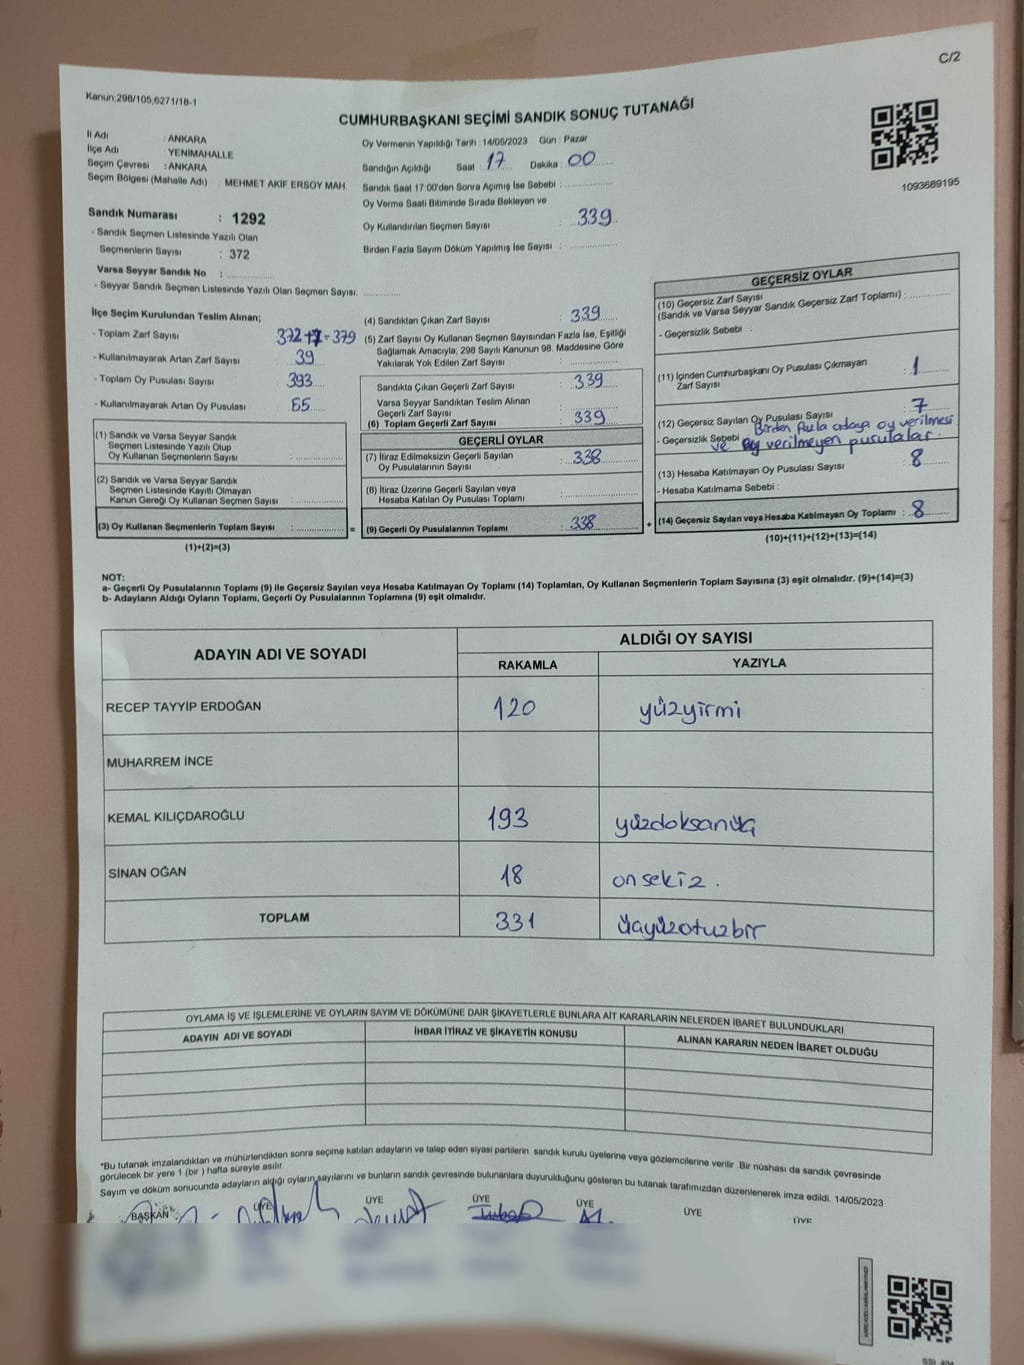 C/2
Kanun;298/105,6271/18-1
CUMHURBAŞKANI SEÇİMİ SANDIK SONUÇ TUTANAĞI
İl Adı : ANKARA
İlçe Adı : YENİMAHALLE
Seçim Çevresi : ANKARA
Seçim Bölgesi (Mahalle Adı) : MEHMET AKİF ERSOY MAH.
Sandık Numarası : 1292
- Sandık Seçmen Listesinde Yazılı Olan
Seçmenlerin Sayısı : 372
Varsa Seyyar Sandık No :
- Seyyar Sandık Seçmen Listesinde Yazılı Olan Seçmen Sayısı:
Oy Vermenin Yapıldığı Tarih : 14/05/2023 Gün : Pazar
Sandığın Açıldığı Saat : 17 Dakika : 00
Sandık Saat 17:00'den Sonra Açımış İse Sebebi :
Oy Verme Saati Bitiminde Sırada Bekleyen ve
Oy Kullandırılan Seçmen Sayısı : 339
Birden Fazla Sayım Döküm Yapılmış İse Sayısı :
1093689195
İlçe Seçim Kurulundan Teslim Alınan;
- Toplam Zarf Sayısı : 372+7=379
- Kullanılmayarak Artan Zarf Sayısı : 39
- Toplam Oy Pusulası Sayısı : 393
- Kullanılmayarak Artan Oy Pusulası : 55
(1) Sandık ve Varsa Seyyar Sandık
Seçmen Listesinde Yazılı Olup
Oy Kullanan Seçmenlerin Sayısı :
(2) Sandık ve Varsa Seyyar Sandık
Seçmen Listesinde Kayıtlı Olmayan
Kanun Gereği Oy Kullanan Seçmen Sayısı :
(3) Oy Kullanan Seçmenlerin Toplam Sayısı : =
(1)+(2)=(3)
(4) Sandıktan Çıkan Zarf Sayısı : 339
(5) Zarf Sayısı Oy Kullanan Seçmen Sayısından Fazla İse, Eşitliği
Sağlamak Amacıyla; 298 Sayılı Kanunun 98. Maddesine Göre
Yakılarak Yok Edilen Zarf Sayısı :
Sandıkta Çıkan Geçerli Zarf Sayısı : 339
Varsa Seyyar Sandıktan Teslim Alınan
Geçerli Zarf Sayısı :
(6) Toplam Geçerli Zarf Sayısı : 339
GEÇERLİ OYLAR
(7) İtiraz Edilmeksizin Geçerli Sayılan
Oy Pusulalarının Sayısı : 338
(8) İtiraz Üzerine Geçerli Sayılan veya
Hesaba Katılan Oy Pusulası Toplamı :
(9) Geçerli Oy Pusulalarının Toplamı : 338 +
GEÇERSİZ OYLAR
(10) Geçersiz Zarf Sayısı
(Sandık ve Varsa Seyyar Sandık Geçersiz Zarf Toplamı) :
- Geçersizlik Sebebi :
(11) İçinden Cumhurbaşkanı Oy Pusulası Çıkmayan
Zarf Sayısı : 1
(12) Geçersiz Sayılan Oy Pusulası Sayısı : 7
- Geçersizlik Sebebi Birden fazla adaya oy verilmesi
ve oy verilmeyen pusulalar.
(13) Hesaba Katılmayan Oy Pusulası Sayısı : 8
- Hesaba Katılmama Sebebi :
(14) Geçersiz Sayılan veya Hesaba Katılmayan Oy Toplamı : 8
(10)+(11)+(12)+(13)=(14)
NOT:
a- Geçerli Oy Pusulalarının Toplamı (9) ile Geçersiz Sayılan veya Hesaba Katılmayan Oy Toplamı (14) Toplamları, Oy Kullanan Seçmenlerin Toplam Sayısına (3) eşit olmalıdır. (9)+(14)=(3)
b- Adayların Aldığı Oyların Toplamı, Geçerli Oy Pusulalarının Toplamına (9) eşit olmalıdır.
ADAYIN ADI VE SOYADI ALDIĞI OY SAYISI
RAKAMLA YAZIYLA
RECEP TAYYİP ERDOĞAN 120 yüzyirmi
MUHARREM İNCE
KEMAL KILIÇDAROĞLU 193 yüzdoksanüç
SİNAN OĞAN 18 onsekiz.
TOPLAM 331 üçyüzotuzbir
OYLAMA İŞ VE İŞLEMLERİNE VE OYLARIN SAYIM VE DÖKÜMÜNE DAİR ŞİKAYETLERLE BUNLARA AİT KARARLARIN NELERDEN İBARET BULUNDUKLARI
ADAYIN ADI VE SOYADI İHBAR İTİRAZ VE ŞİKAYETİN KONUSU ALINAN KARARIN NEDEN İBARET OLDUĞU
*Bu tutanak imzalandıktan ve mühürlendikten sonra seçime katılan adayların ve talep eden siyasi partilerin sandık kurulu üyelerine veya gözlemcilerine verilir. Bir nüshası da sandık çevresinde
görülecek bir yere 1 (bir ) hafta süreyle asılır.
Sayım ve döküm sonucunda adayların aldığı oyların sayılarını ve bunların sandık çevresinde bulunanlara duyurulduğunu gösteren bu tutanak tarafımızdan düzenlenerek imza edildi. 14/05/2023
BAŞKAN ÜYE ÜYE ÜYE ÜYE ÜYE ÜYE